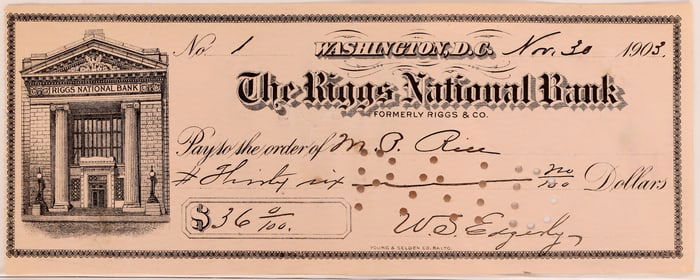 No. 1 WASHINGTON, D.C. Nov. 30 1903.
RIGGS NATIONAL BANK
The Riggs National Bank
FORMERLY RIGGS & CO.
Pay to the order of M. P. Rice
# Thirty six no/100 Dollars
$36 0/100.
W. S. Edgerly
YOUNG & SELDEN CO. BALTO.